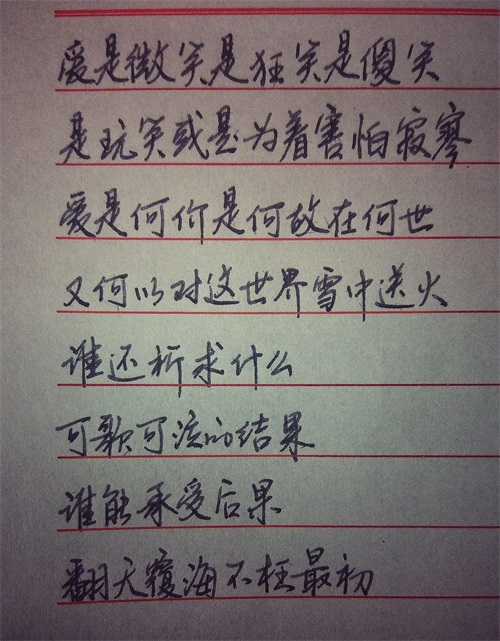 爱是微笑是狂笑是傻笑
是玩笑或是为着害怕寂寥
爱是何价是何故在何世
又何以对这世界雪中送火
谁还祈求什么
可歌可泣的结果
谁能承受后果
翻天覆海不枉最初